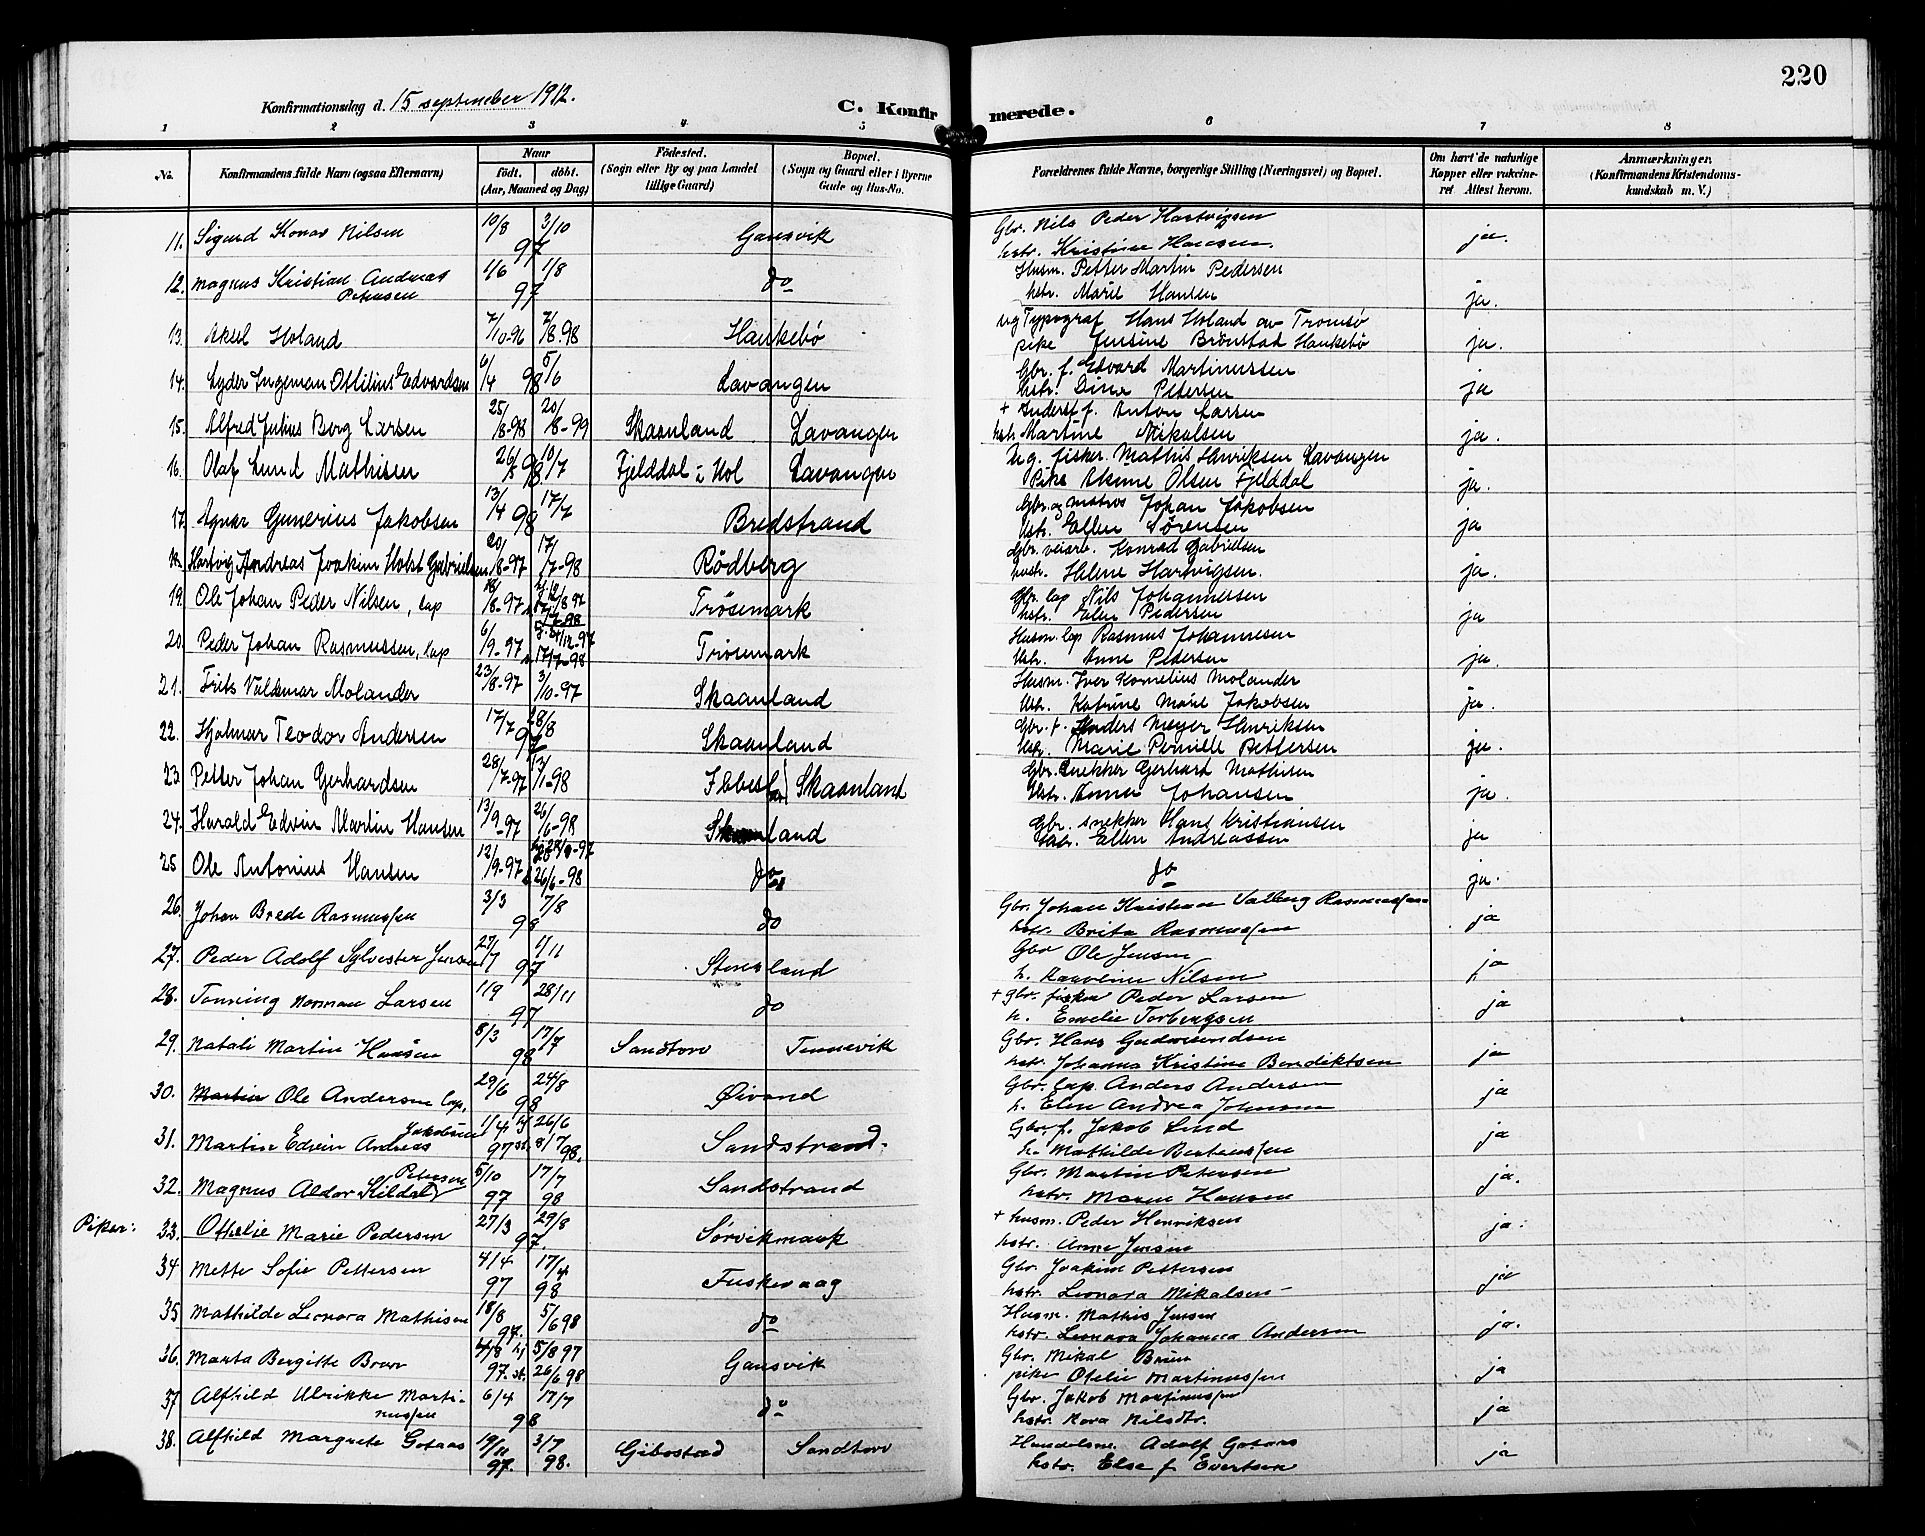 220
Konfirmationsdag d. 15 september 1912.
C. Konfirmerede.
1 2 3 4 5 6 7 8
No. Konfirmandens fulde Navn (ogsaa Efternavn) Naar født. døbt. (Aar, Maaned og Dag) Fødested. (Sogn eller By og paa Landet tillige Gaard) Bopæl. (Sogn og Gaard eller i Byerne Gade og Hus-No. Forældrenes fulde Navne, borgerlige Stilling (Næringsvei) og Bopæl. Om havt de naturlige Kopper eller vakcineret Attest herom. Anmærkninger. (Konfirmandens Kristendomskundskab m. V.)
11. Sigurd Konar Nilsen 10/8 3/10 97 Gausvik Gbr. Nils Peder Hartvigsen hstr. Kristine Hansen. ja.
12. Magnus Kristian Andreas Petersen 1/6 1/8 97 do Husm. Petter Martin Pedersen hstr. Marie Hansen ja.
13. Aksel Holand 7/10-96 7/8-98 Haukebø ug Typograf Hans Holand av Tromsø pike Jensine Brönstad Haukebø ja.
14. Lyder Ingeman Ottilius Edvardsen 6/4 5/6 98 Lavangen Gbr. f. Edvard Martinussen hstr. Dina Petersen ja
15. Alfred Julius Borg Larsen 25/8-98 20/8-99 Skaanland Lavangen + Anton Larsen hstr. Martine Mikalsen ja.
16. Olaf Lund Mathisen 26/5 10/7 98 Fjelddal i Hol Lavangen Ug. fisker Mathis Henriksen Lavangen Pike Olsen Fjelddal ja.
17. Agnar Gunerius Jakobsen 13/4 17/7 98 Bredstrand Gbr. og matros Johan Jakobsen Hstr. Ellen Sørensen ja
18. Hartvig Andreas Joakim Holst Gabrielsen 20/8-97 17/7-98 Rödberg Gbr. veiarb. Konrad Gabrielsen hustr. Helene Hartvigsen. ja.
19. Ole Johan Peder Nilsen, lap 18/8-97 Trösemark Gbr. lap Nils Johannessen hstr. Elen Pedersen ja
20. Peder Johan Rasmussen, lap 6/9-97 17/7-98 Trösemark Husm. lap Rasmus Johannesen Hstr. Anne Pedersen ja.
21. Frits Valdemar Molander 23/8-97 3/10-97 Skaanland Husm. Iver Kornelius Molander Hstr. Katrine Marie Jakobsen ja.
22. Hjalmar Teodor Andersen 17/7 28/8 97 Skaanland Gbr. f. Anders Meyer Henriksen Hstr. Marie Pernille Pettersen ja.
23. Petter Johan Gerhardsen 28/7-97 13/1-98 Ibbestad Skaanland Gbr. Snekker Gerhart Mathisen Hstr. Anna Johansen ja.
24. Harald Edvin Martin Hansen 13/9-97 26/6-98 Skaanland Gbr. snekker Hans Kristiansen hstr. Ellen Andreassen ja
25 Ole Antonius Hansen 12/9-97 26/6-98 do do ja.
26. Johan Brede Rasmussen 3/3 7/8 98 do Gbr. Johan Kristian Valberg Rasmussen hstr. Brita Rasmussen ja
27. Peder Adolf Sylvester Jensen 27/7 1/11 97 Steinsland Gbr Ole Jensen h. Karoline Nilsen ja
28. Tonning Norman Larsen 1/9 28/11 97 do + gbr. fisker Peder Larsen h. Emelie Torbergsen ja
29. Natali Martin Hansen 8/3 17/7 98 Sandtorv Tennevik Gbr. Hans Gudmundsen hstr. Johanna Kristine Bendiktsen ja
30. Martin Ole Andersen lap. 29/6 24/8 98 Øivand Gbr. lap. Anders Andersen h. Elen Andrea Johnsen ja
31. Martin Edvin Andreas Jakobsen 1/4 97 hj 26/6 st. 8/7 98. Sandstrand. Gbr. f. Jakob Lind h. Mathilde Berteussen ja
32. Magnus Aldor Kildal Petersen 5/10 97 17/7 98 Sandstrand Gbr. Martin Petersen hstr. Maren Hansen ja.
Piker:
33. Othelie Marie Pedersen 27/3 29/8 97. Sørvikmark + husm. Peder Henriksen hstr. Anne Jensen ja.
34 Mette Sofie Pettersen 4/4 97 17/4 98 Fuskevaag Gbr. Joakim Pettersen hstr. Leonora Mikalsen ja
35 Mathilde Leonora Mathisen 18/8 97. 5/6 98 do Husm. Mathis Jensen hstr. Leonora Johanna Andersen ja.
36. Marta Bergitte Brun 4/8 97. hj 5/8 97 st. 26/6 98 Gausvik Gbr. Mikal Brun pike Otelie Martinussen ja
37 Alfhild Ulrikke Martinussen 6/4 17/7 98 do Gbr. Jakob Martinussen hstr. Nora Nilsdtr. ja
38. Alfhild Margrete Gotaas 19/11 97. 3/7 98. Gibostad Sandtorv Handelsm. Adolf Gotaas hstr. Else f. Evertsen ja